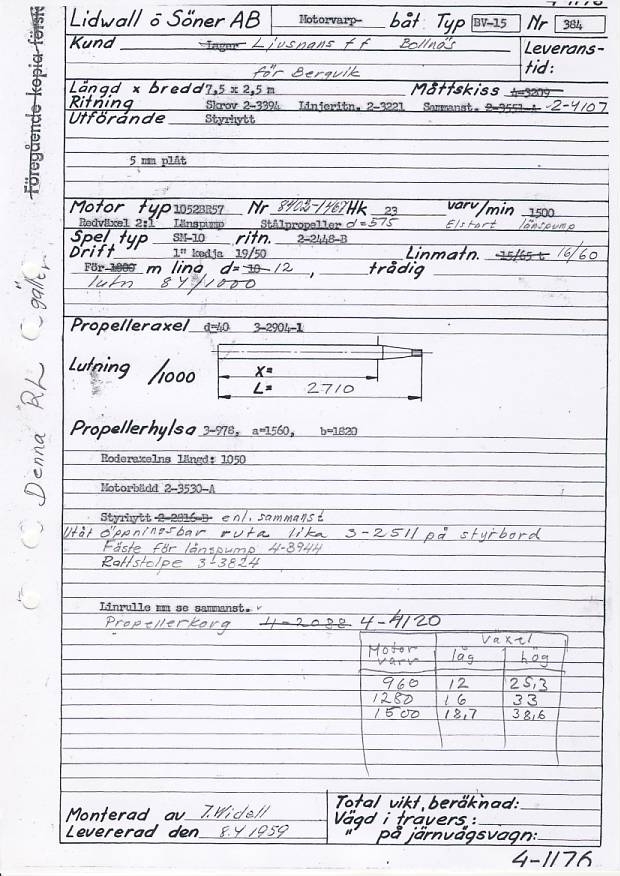 4-1176
Lidwall ö Söner AB Motorvarp- båt Typ BV-15 Nr 384
Kund Lager Ljusnans ff Bollnäs Leverans-
för Bergvik tid:
Längd x bredd 7,5 x 2,5 m Måttskiss 4-3209
Ritning Skrov 2-3394 Linjeritn. 2-3221 Sammanst. 2-3551-A 2-4107
Utförande Styrhytt
5 mm plåt
Motor typ 1052BR57 Nr 8403-1467 Hk 23 varv/min 1500
Redväxel 2:1 Länspump Stålpropeller d=575 Elstart länspump
Spel typ SM-10 ritn. 2-2448-B
Drift 1" kedja 19/50 Linmatn. 15/65 t 16/60
För 1000 m lina d= 10 12, trådig
lutn 84/1000
Propelleraxel d=40 3-2904-1
Lutning /1000
X=
L= 2710
Propellerhylsa 3-978, a=1560, b=1820
Roderaxelns längd: 1050
Motorbädd 2-3530-A
Styrhytt 2-2816-B enl. sammanst
Utåt öppningsbar ruta lika 3-2511 på styrbord
Fäste för länspump 4-3944
Rattstolpe 3-3824
Linrulle mm se sammanst.
Propellerkorg 4-2088 4-4120
Motor varv Växel
låg hög
960 12 25,3
1280 16 33
1500 18,7 38,6
Monterad av T. Widell
Levererad den 8.4 1959
Total vikt, beräknad:
Vägd i travers:
" på järnvägsvagn:
4-1176
Föregående kopia först
Denna RL gäller